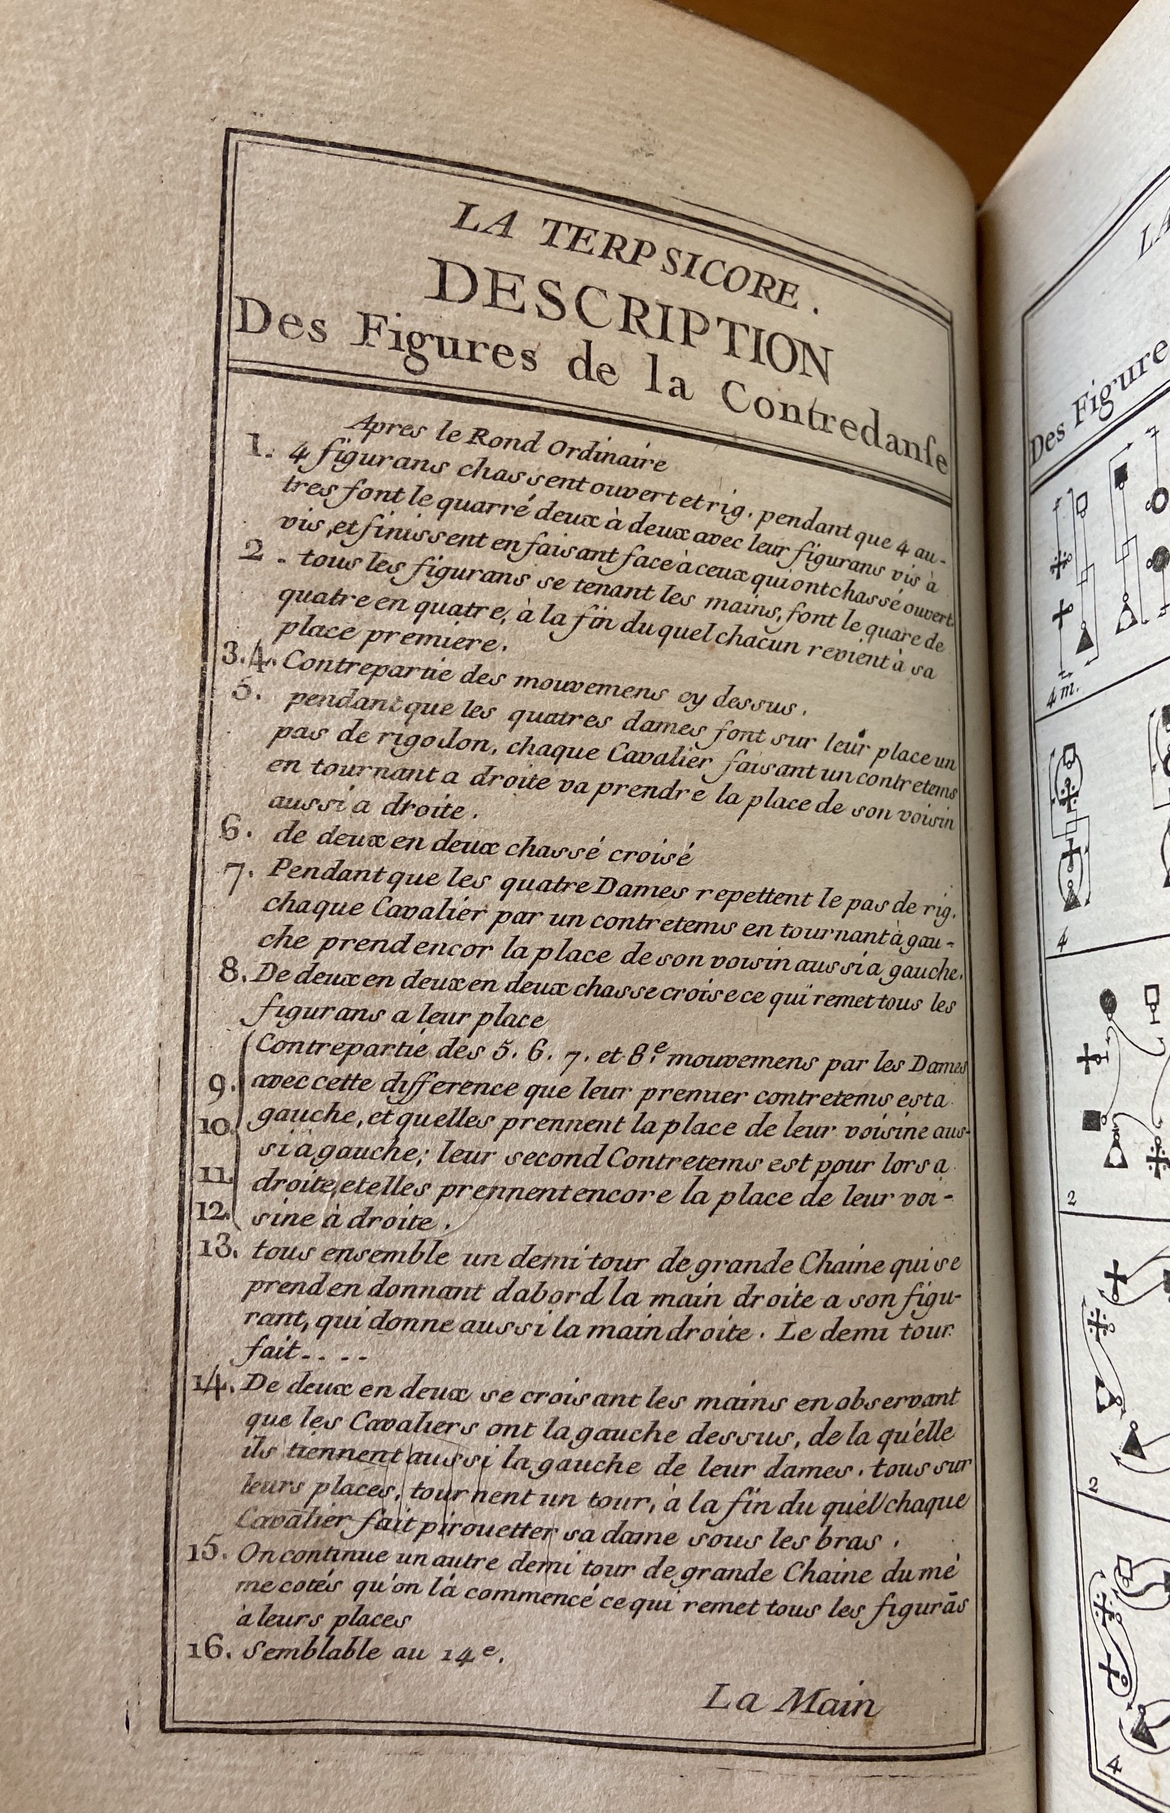 LA TERPSICORE.
DESCRIPTION
Des Figures de la Contredanſe
Apres le Rond Ordinaire
1. 4 figurans chassent ouvert et rig. pendant que 4 au-
tres font le quarré deux à deux avec leur figurans vis à
vis, et finissent en faisant face à ceux qui ont chassé ouvert
2. tous les figurans se tenant les mains, font le quare de
quatre en quatre, à la fin du quel chacun revient à sa
place premiere.
3.4. Contrepartie des mouvemens cy dessus.
5. pendant que les quatres dames font sur leur place un
pas de rigodon, chaque Cavalier faisant un contretems
en tournant a droite va prendre la place de son voisin
aussi a droite.
6. de deux en deux chassé croisé
7. Pendant que les quatre Dames repettent le pas de rig.
chaque Cavalier par un contretems en tournant à gau-
che prend encor la place de son voisin aussi a gauche.
8. De deux en deux en deux chasse croise ce qui remet tous les
figurans a leur place
Contrepartie des 5. 6. 7. et 8e. mouvemens par les Dames
9. avec cette difference que leur premier contretems est a
10. gauche, et quelles prennent la place de leur voisine aus-
si à gauche; leur second Contretems est pour lors a
11. droite, et elles prennent encore la place de leur voi-
12. sine à droite.
13. tous ensemble un demi tour de grande Chaine qui se
prend en donnant dabord la main droite a son figu-
rant, qui donne aussi la main droite. Le demi tour
fait....
14. De deux en deux se croisant les mains en observant
que les Cavaliers ont la gauche dessus, de la qu'elle
ils tiennent aussi la gauche de leur dames. tous sur
leurs places, tournent un tour, à la fin du quel chaque
Cavalier fait pirouetter sa dame sous les bras.
15. On continue un autre demi tour de grande Chaine du mê
me cotés qu'on l'à commencé ce qui remet tous les figurās
à leurs places
16. Semblable au 14e.
La Main
LA
Des Figure
4 m.
4
2
2
4